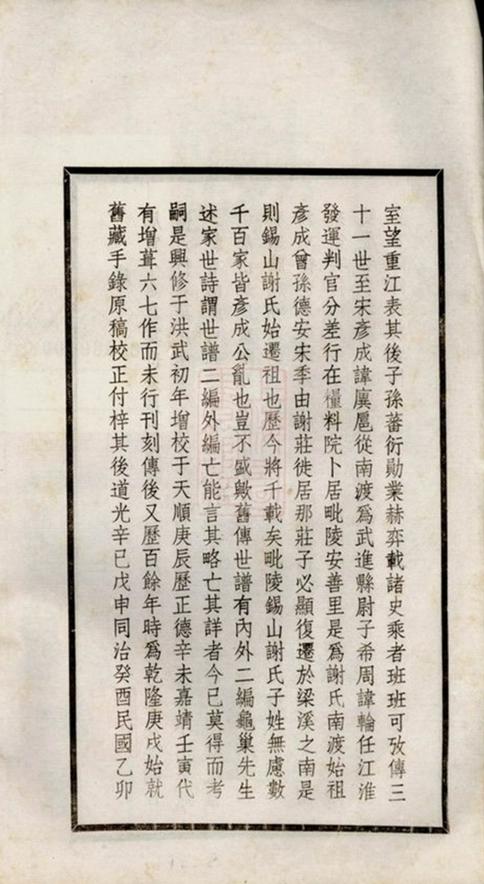 室望重江表其後子孫蕃衍勛業赫弈載諸史乘者班班可攷傳三
十一世至宋彥成諱廙扈從南渡爲武進縣尉子希周諱輪任江淮
發運判官分差行在糧料院卜居毗陵安善里是爲謝氏南渡始祖
彥成曾孫德安宋季由謝莊徙居那莊子必顯復遷於梁溪之南是
則錫山謝氏始遷祖也歷今將千載矣毗陵錫山謝氏子姓無慮數
千百家皆彥成公亂也豈不盛歟舊傳世譜有內外二編龜巢先生
述家世詩謂世譜二編外編亡能言其略亡其詳者今已莫得而考
嗣是興修于洪武初年增校于天順庚辰歷正德辛未嘉靖壬寅代
有增葺六七作而未行刊刻傳後又歷百餘年時爲乾隆庚戌始就
舊藏手錄原稿校正付梓其後道光辛巳戊申同治癸酉民國乙卯